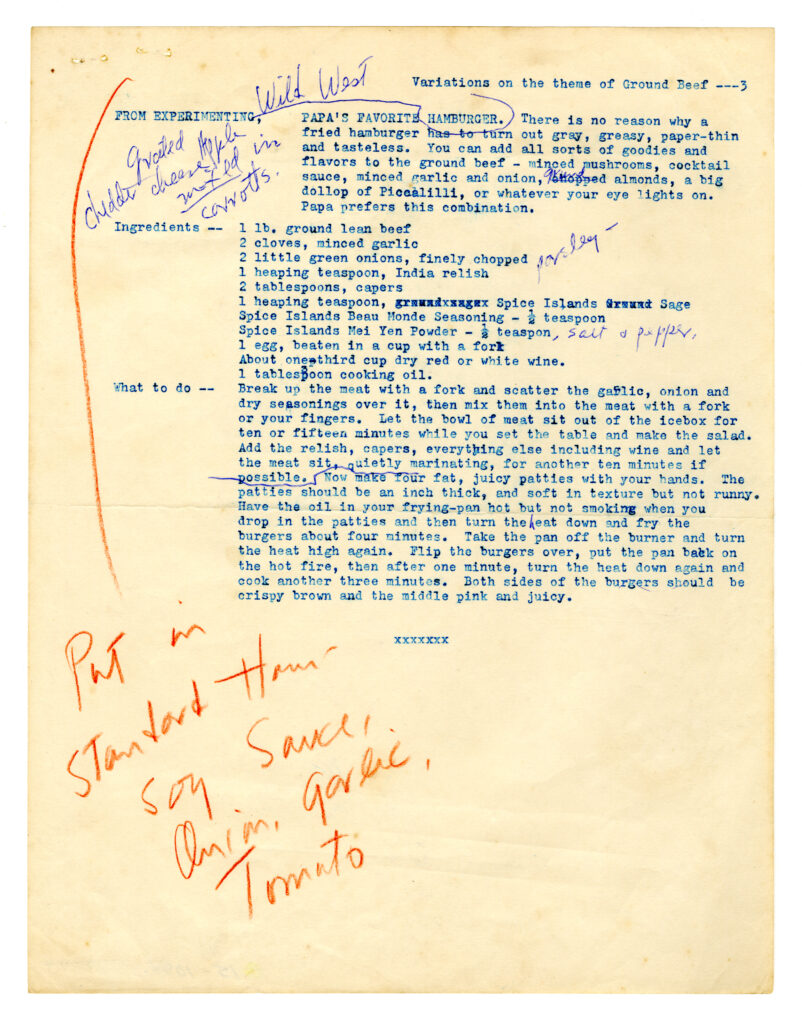 Variations on the theme of Ground Beef ---3
Wild West
FROM EXPERIMENTING, PAPA'S FAVORITE HAMBURGER. There is no reason why a
fried hamburger has to turn out gray, greasy, paper-thin
and tasteless. You can add all sorts of goodies and
flavors to the ground beef - minced mushrooms, cocktail
sauce, minced garlic and onion, chopped almonds, a big
dollop of Piccalilli, or whatever your eye lights on.
Papa prefers this combination.
grated Apple
chedder cheese
mixed in
carrotts.
Ingredients -- 1 lb. ground lean beef
2 cloves, minced garlic
2 little green onions, finely chopped parsley -
1 heaping teaspoon, India relish
2 tablespoons, capers
1 heaping teaspoon, Spice Islands Sage
Spice Islands Beau Monde Seasoning - ½ teaspoon
Spice Islands Mei Yen Powder - ½ teaspon, salt & pepper.
1 egg, beaten in a cup with a fork
About one-third cup dry red or white wine.
1 tablespoon cooking oil.
What to do -- Break up the meat with a fork and scatter the garlic, onion and
dry seasonings over it, then mix them into the meat with a fork
or your fingers. Let the bowl of meat sit out of the icebox for
ten or fifteen minutes while you set the table and make the salad.
Add the relish, capers, everything else including wine and let
the meat sit, quietly marinating, for another ten minutes if
possible. Now make four fat, juicy patties with your hands. The
patties should be an inch thick, and soft in texture but not runny.
Have the oil in your frying-pan hot but not smoking when you
drop in the patties and then turn the heat down and fry the
burgers about four minutes. Take the pan off the burner and turn
the heat high again. Flip the burgers over, put the pan back on
the hot fire, then after one minute, turn the heat down again and
cook another three minutes. Both sides of the burgers should be
crispy brown and the middle pink and juicy.
xxxxxxx
Put in
Standard Ham-
Soy Sauce,
Onion, Garlic,
Tomato